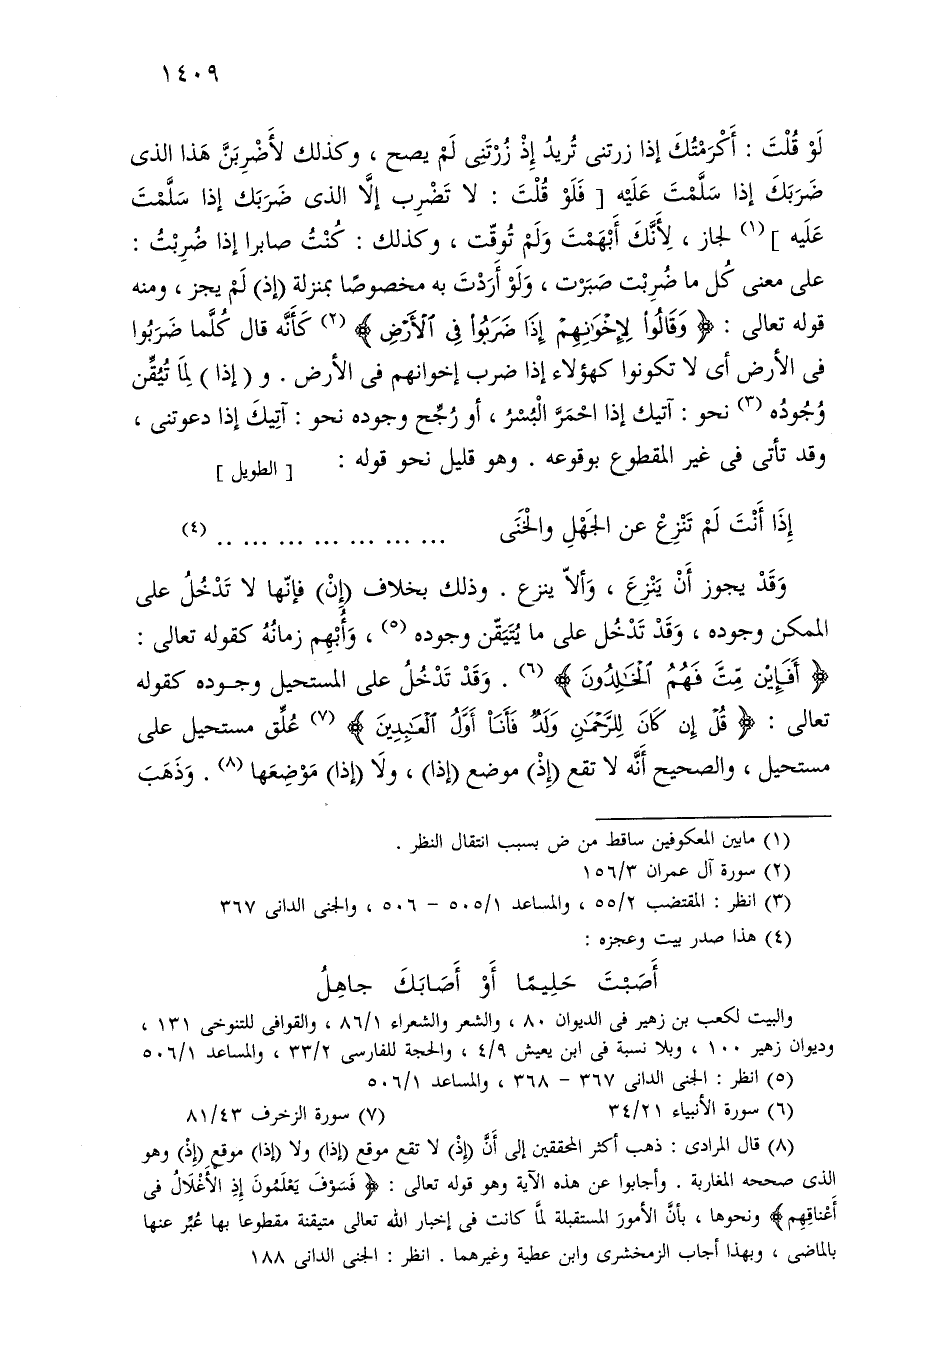 ١٤٠٩
لَوْ قُلْتَ : أَكْرَمْتُكَ إذا زرتنى تُريدُ إِذْ زُرْتَنِى لَمْ يصح ، وكذلك لأَضْرِبَنَّ هَذا الذى
ضَرَبَكَ إذا سَلَّمْتَ عَلَيْه [ فَلَوْ قُلْتَ : لا تَضْرِب إلَّا الذى ضَرَبَك إذا سَلَّمْتَ
عَلَيه ] (١) لجاز ، لِأَنَّكَ أَبْهَمْتَ وَلَمْ تُوقّت ، وكذلك : كُنْتُ صابرا إذا ضُرِبْتُ :
على معنى كُل ما ضُرِبْت صَبَرْت ، وَلَوْ أَرَدْتَ به مخصوصًا بمنزلة (إذ) لَمْ يجز ، ومنه
قوله تعالى : ﴿ وَقَالُواْ لِإِخْوَٰنِهِمْ إِذَا ضَرَبُواْ فِى ٱلْأَرْضِ ﴾ (٢) كَأَنَّه قال كُلَّما ضَرَبُوا
فى الأرض أى لا تكونوا كهؤلاء إذا ضرب إخوانهم فى الأرض . و (إذا) لِمَا تُيُقِّن
وُجُودُه (٣) نحو : آتيك إذا احْمَرَّ الْبُسْرُ ، أو رُجِّح وجوده نحو : آتِيكَ إذا دعوتنى ،
وقد تأتى فى غير المقطوع بوقوعه . وهو قليل نحو قوله : [ الطويل ]
إِذَا أَنْتَ لَمْ تَنْزِعْ عن الجَهْلِ والْخَنَى ... ... ... ... ... ... .. (٤)
وَقَدْ يجوز أَنْ يَنْزِعَ ، وَألاّ ينزع . وذلك بخلاف (إِنْ) فإنّها لا تَدْخُلُ على
الممكن وجوده ، وَقَدْ تَدْخُل على ما يُتَيَقّن وجوده (٥) ، وَأُبْهِم زمانُهُ كقوله تعالى :
﴿ أَفَإِيْن مِّتَّ فَهُمُ ٱلْخَٰلِدُونَ ﴾ (٦) . وَقَدْ تَدْخُلُ على المستحيل وجوده كقوله
تعالى : ﴿ قُلْ إِن كَانَ لِلرَّحْمَٰنِ وَلَدٌ فَأَنَا۠ أَوَّلُ ٱلْعَٰبِدِينَ ﴾ (٧) عُلِّق مستحيل على
مستحيل ، والصحيح أَنَّه لا تقع (إِذْ) موضع (إذا) ، ولَا (إذا) مَوْضِعَها (٨) . وَذَهَبَ
(١) مابين المعكوفين ساقط من ض بسبب انتقال النظر .
(٢) سورة آل عمران ١٥٦/٣
(٣) انظر : المقتضب ٥٥/٢ ، والمساعد ٥٠٥/١ – ٥٠٦ ، والجنى الدانى ٣٦٧
(٤) هذا صدر بيت وعجزه :
أَصَبْتَ حَلِيمًا أَوْ أَصَابَكَ جاهِلُ
والبيت لكعب بن زهير فى الديوان ٨٠ ، والشعر والشعراء ٨٦/١ ، والقوافى للتنوخى ١٣١ ،
وديوان زهير ١٠٠ ، وبلا نسبة فى ابن يعيش ٤/٩ ، والحجة للفارسى ٣٣/٢ ، والمساعد ٥٠٦/١
(٥) انظر : الجنى الدانى ٣٦٧ – ٣٦٨ ، والمساعد ٥٠٦/١
(٦) سورة الأنبياء ٣٤/٢١ (٧) سورة الزخرف ٨١/٤٣
(٨) قال المرادى : ذهب أكثر المحققين إلى أَنَّ (إِذْ) لا تقع موقع (إذا) ولا (إذا) موقع (إِذْ) وهو
الذى صححه المغاربة . وأجابوا عن هذه الآية وهو قوله تعالى : ﴿ فَسَوْفَ يَعْلَمُونَ إِذِ الْأَغْلَالُ فِى
أَعْناقِهِم ﴾ ونحوها ، بأنَّ الأمورَ المستقبلة لمَّا كانت فى إخبار الله تعالى متيقنة مقطوعا بها عُبِّر عنها
بالماضى ، وبهذا أجاب الزمخشرى وابن عطية وغيرهما . انظر : الجنى الدانى ١٨٨